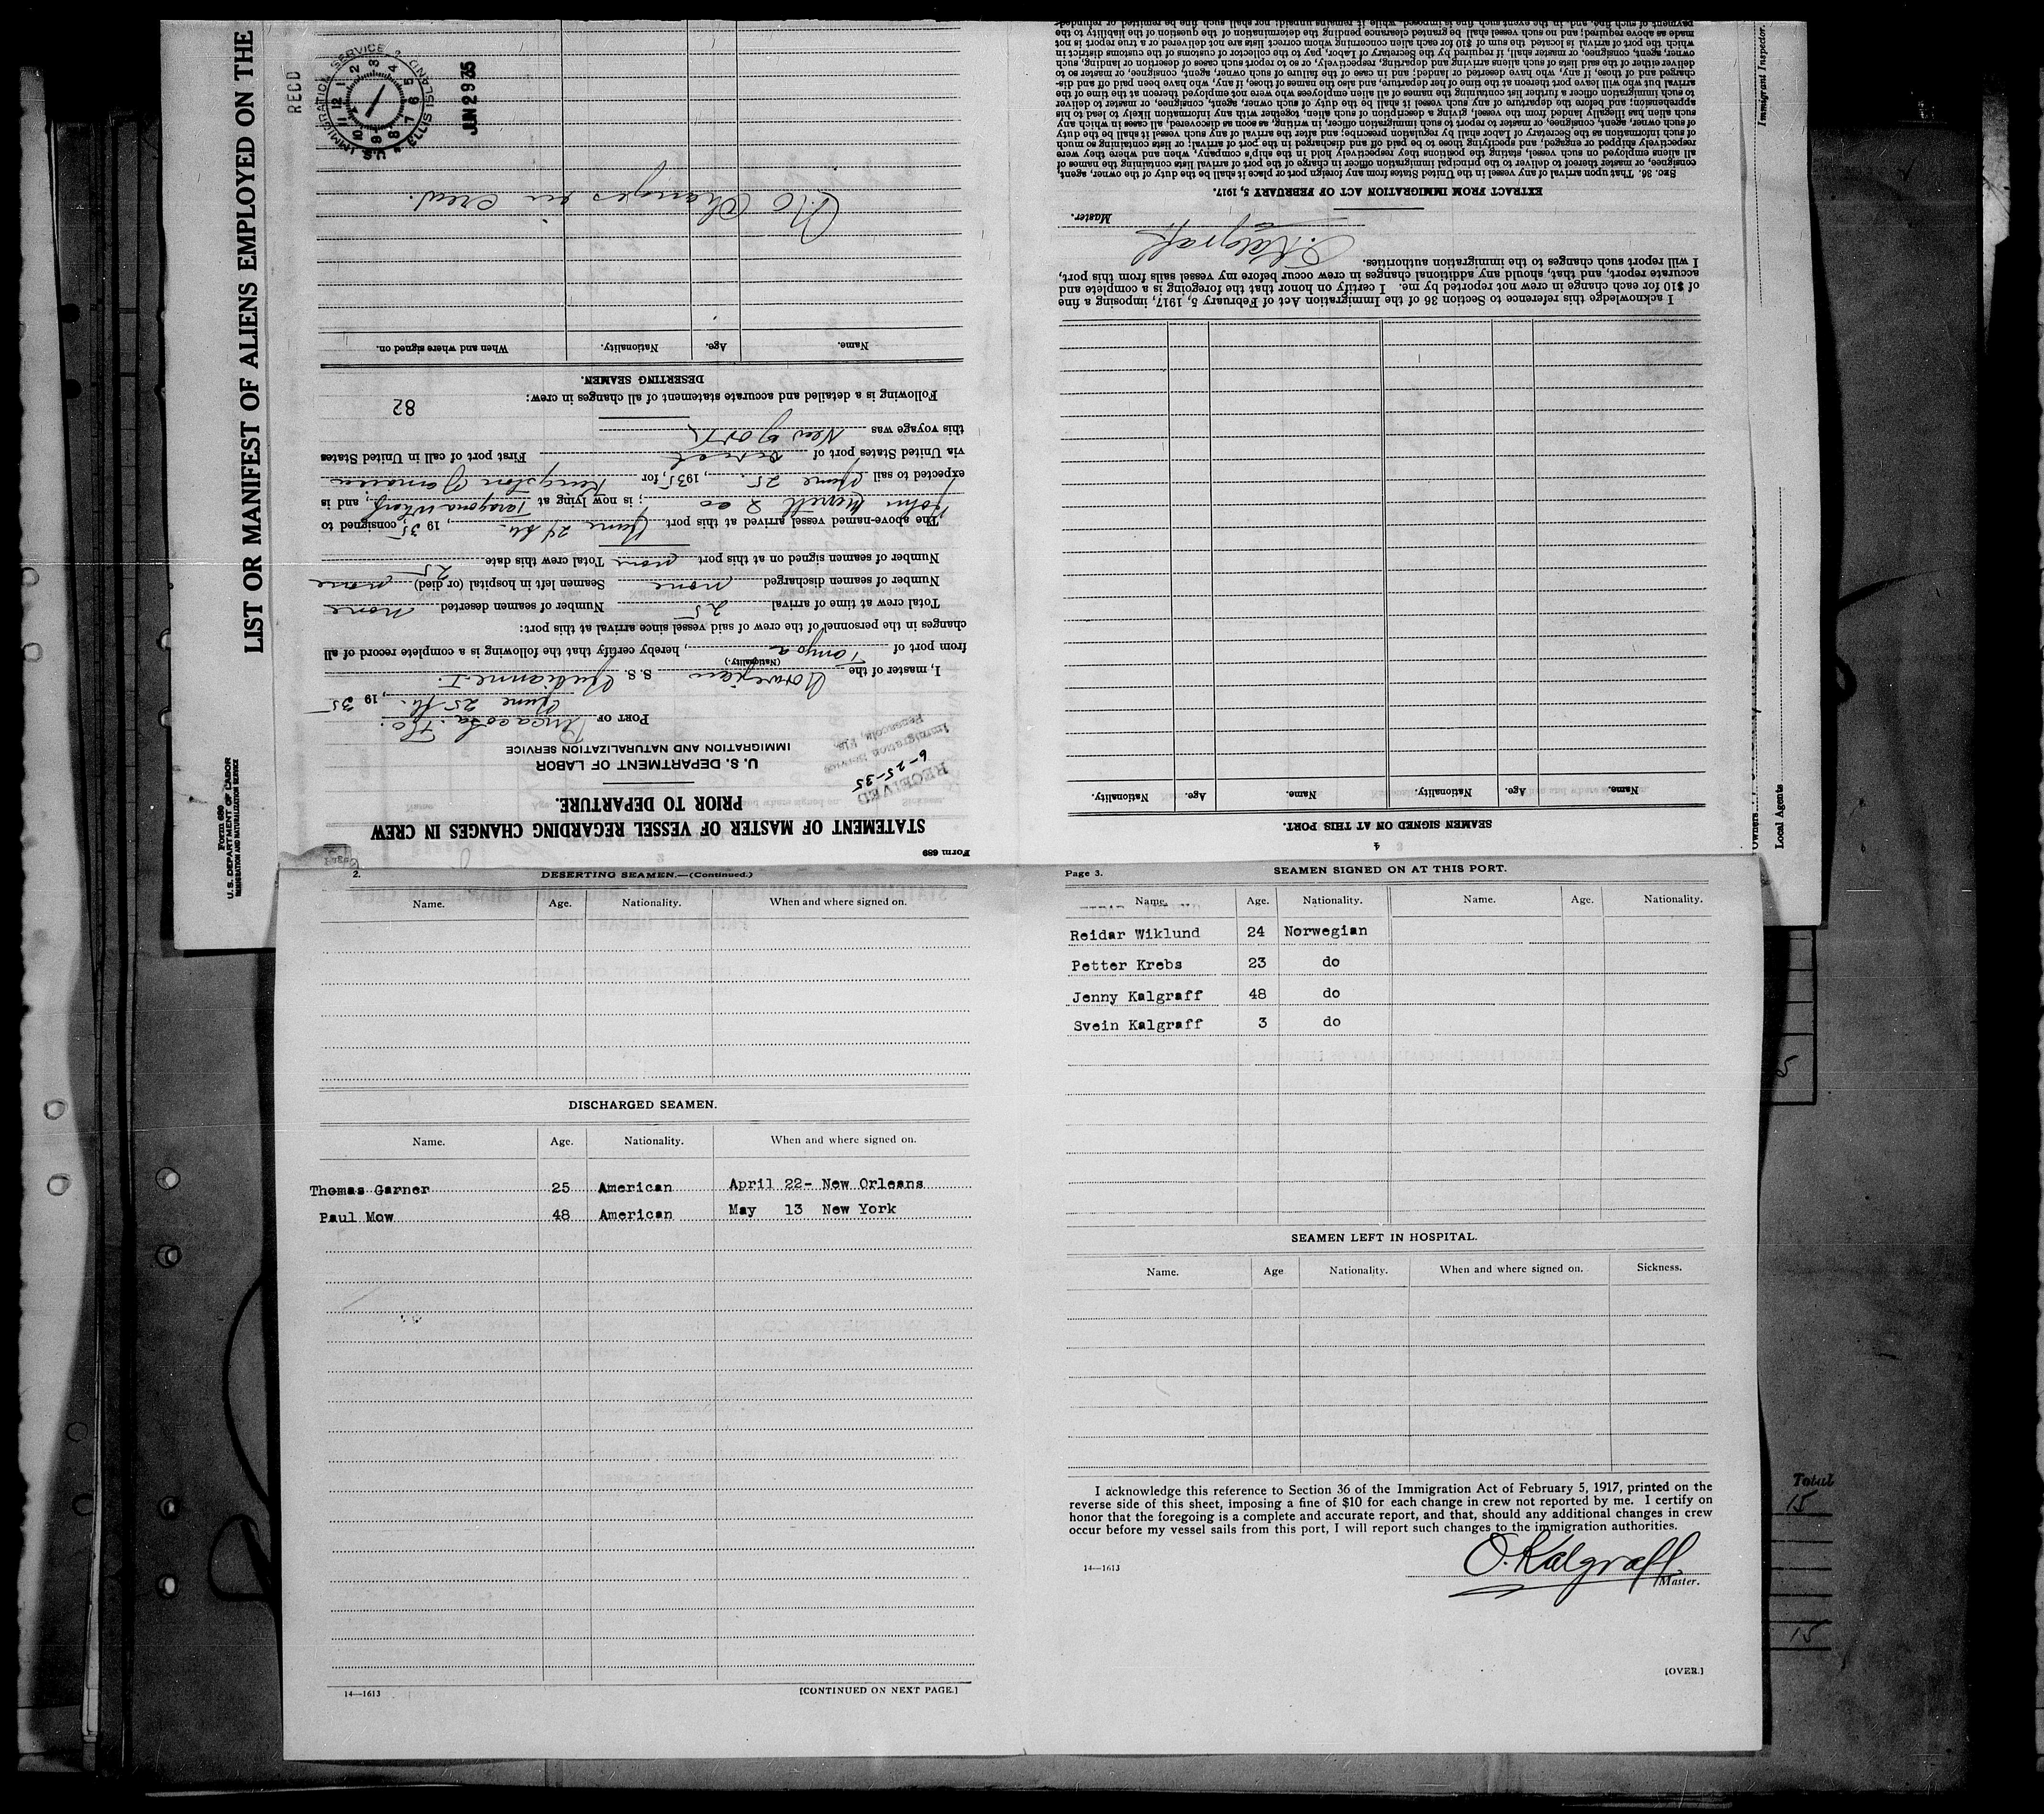 LIST OR MANIFEST OF ALIENS EMPLOYED ON THE
Form 689
U. S. DEPARTMENT OF LABOR
IMMIGRATION AND NATURALIZATION SERVICE
RECD
IMMIGRATION SERVICE
U.S. ELLIS ISLAND
JUN 29 35
Form 689
STATEMENT OF MASTER OF VESSEL REGARDING CHANGES IN CREW
PRIOR TO DEPARTURE.
U. S. DEPARTMENT OF LABOR
IMMIGRATION AND NATURALIZATION SERVICE
RECEIVED
6-25-35
Immigration Service
Pensacola, Fla.
PORT OF Pensacola Fla.
June 25th., 19 35
I, master of the Norwegian S. S.
(Nationality.)
from port of Tampa, hereby certify that the following is a complete record of all
changes in the personnel of the crew of said vessel since arrival at this port:
Total crew at time of arrival 25 Number of seamen deserted none
Number of seamen discharged none Seamen left in hospital (or died) none
Number of seamen signed on at this port none Total crew this date 25
The above-named vessel arrived at this port June 24th., 19 35, consigned to
John Merritt & Co; is now lying at Tarragona Wharf; and is
expected to sail June 25, 1935, for Kingston Jamaica
via United States port of direct First port of call in United States
this voyage was New York
Following is a detailed and accurate statement of all changes in crew:
82
DESERTING SEAMEN.
Name. Age. Nationality. When and where signed on.
No Changes in Crew.
4
SEAMEN SIGNED ON AT THIS PORT.
Name. Age. Nationality. Name. Age. Nationality.
I acknowledge this reference to Section 36 of the Immigration Act of February 5, 1917, imposing a fine
of $10 for each change in crew not reported by me. I certify on honor that the foregoing is a complete and
accurate report, and that, should any additional changes in crew occur before my vessel sails from this port,
I will report such changes to the immigration authorities.
O. Kalgraff
Master.
EXTRACT FROM IMMIGRATION ACT OF FEBRUARY 5, 1917.
SEC. 36. That upon arrival of any vessel in the United States from any foreign port or place it shall be the duty of the owner, agent,
consignee, or master thereof to deliver to the principal immigration officer in charge of the port of arrival lists containing the names of
all aliens employed on such vessel, stating the positions they respectively hold in the ship's company, when and where they were
respectively shipped or engaged, and specifying those to be paid off and discharged in the port of arrival; or lists containing so much
of such information as the Secretary of Labor shall by regulation prescribe; and after the arrival of any such vessel it shall be the duty
of such owner, agent, consignee, or master to report to such immigration officer, in writing, as soon as discovered, all cases in which any
such alien has illegally landed from the vessel, giving a description of such alien, together with any information likely to lead to his
apprehension; and before the departure of any such vessel it shall be the duty of such owner, agent, consignee, or master to deliver
to such immigration officer a further list containing the names of all alien employees who were not employed thereon at the time of the
arrival but who will leave port thereon at the time of her departure, and also the names of those, if any, who have been paid off and dis-
charged and of those, if any, who have deserted or landed; and in case of the failure of such owner, agent, consignee, or master so to
deliver either of the said lists of such aliens arriving and departing, respectively, or so to report such cases of desertion or landing, such
owner, agent, consignee, or master shall, if required by the Secretary of Labor, pay to the collector of customs of the customs district in
which the port of arrival is located the sum of $10 for each alien concerning whom correct lists are not delivered or a true report is not
made as above required; and no such vessel shall be granted clearance pending the determination of the question of the liability to the
payment of such fine, and in the event such fine is imposed, while it remains unpaid; nor shall such fine be remitted or refunded:
Immigrant Inspector.
Local Agents
Owners
2.
DESERTING SEAMEN.—(Continued.)
Name. Age. Nationality. When and where signed on.
DISCHARGED SEAMEN.
Name. Age. Nationality. When and where signed on.
Thomas Garner 25 American April 22- New Orleans
Paul Mow 48 American May 13 New York
14—1613
[CONTINUED ON NEXT PAGE.]
Page 3.
SEAMEN SIGNED ON AT THIS PORT.
Name. Age. Nationality. Name. Age. Nationality.
Reidar Wiklund 24 Norwegian
Petter Krebs 23 do
Jenny Kalgraff 48 do
Svein Kalgraff 3 do
SEAMEN LEFT IN HOSPITAL.
Name. Age Nationality. When and where signed on. Sickness.
I acknowledge this reference to Section 36 of the Immigration Act of February 5, 1917, printed on the
reverse side of this sheet, imposing a fine of $10 for each change in crew not reported by me. I certify on
honor that the foregoing is a complete and accurate report, and that, should any additional changes in crew
occur before my vessel sails from this port, I will report such changes to the immigration authorities.
O. Kalgraff
Master.
14—1613
[OVER.]
Total
15
15